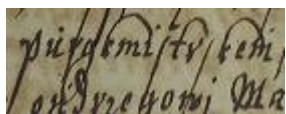 purgkmistr kem
ondrzegowi Ma